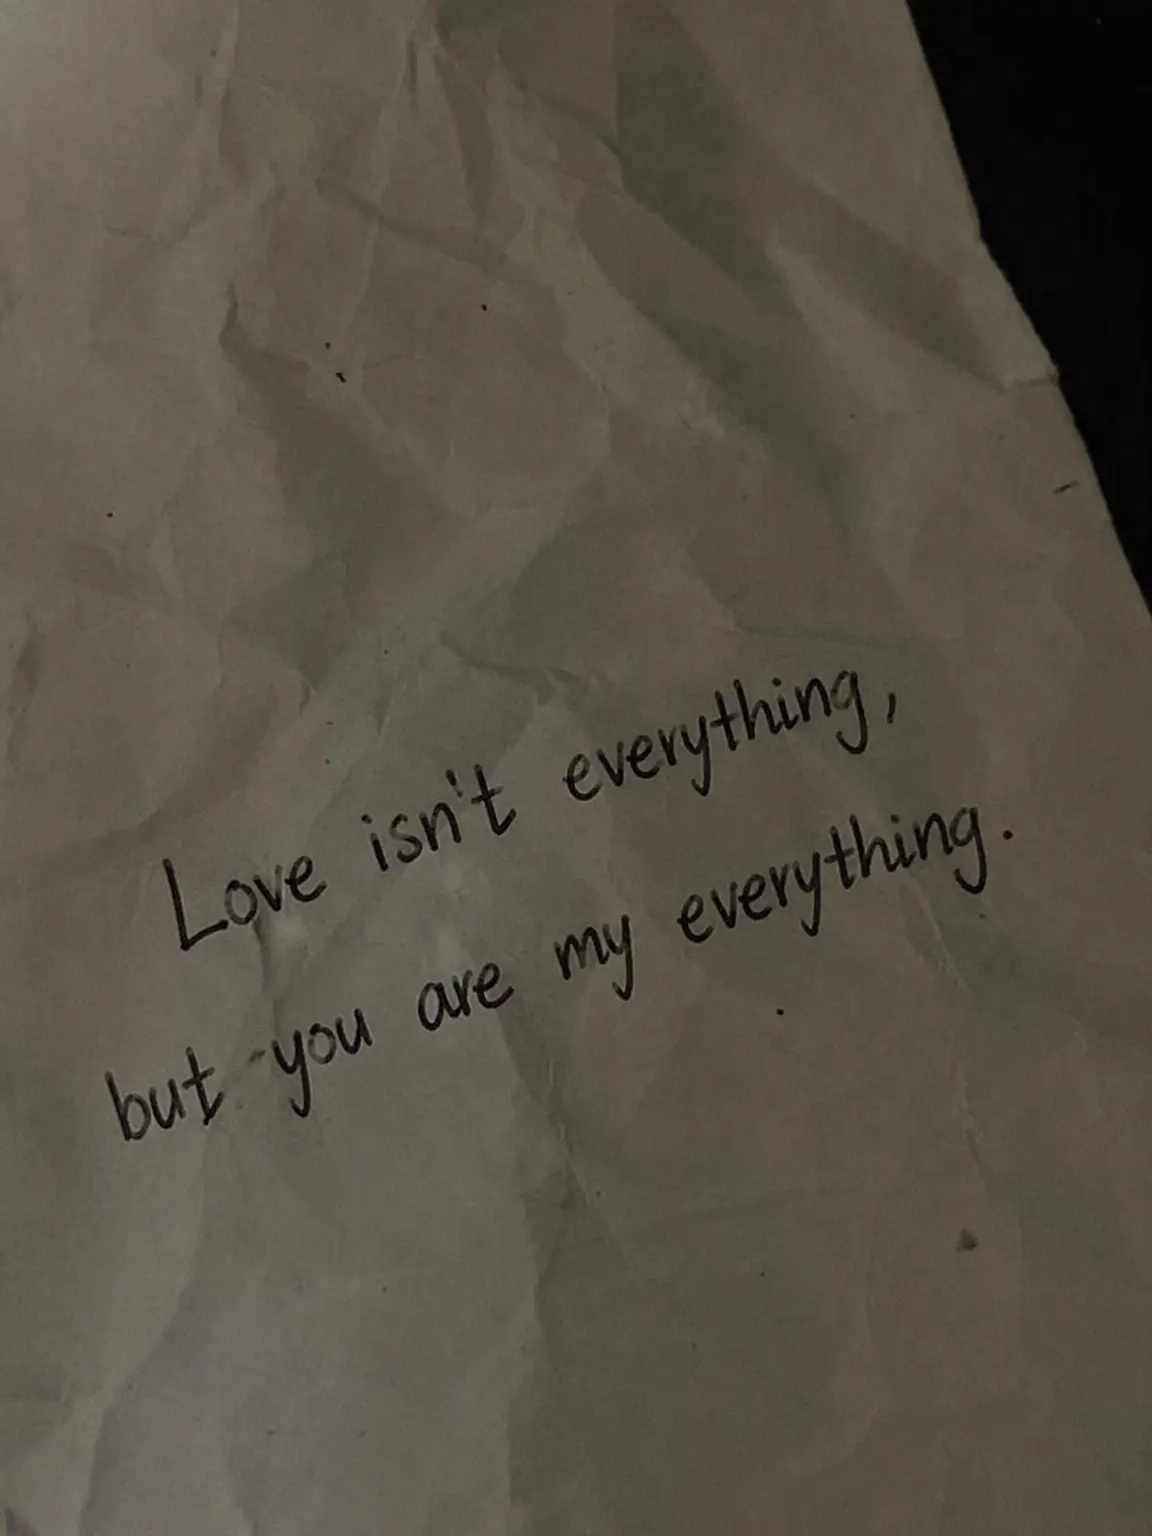 Love isn't everything,
but you are my everything.